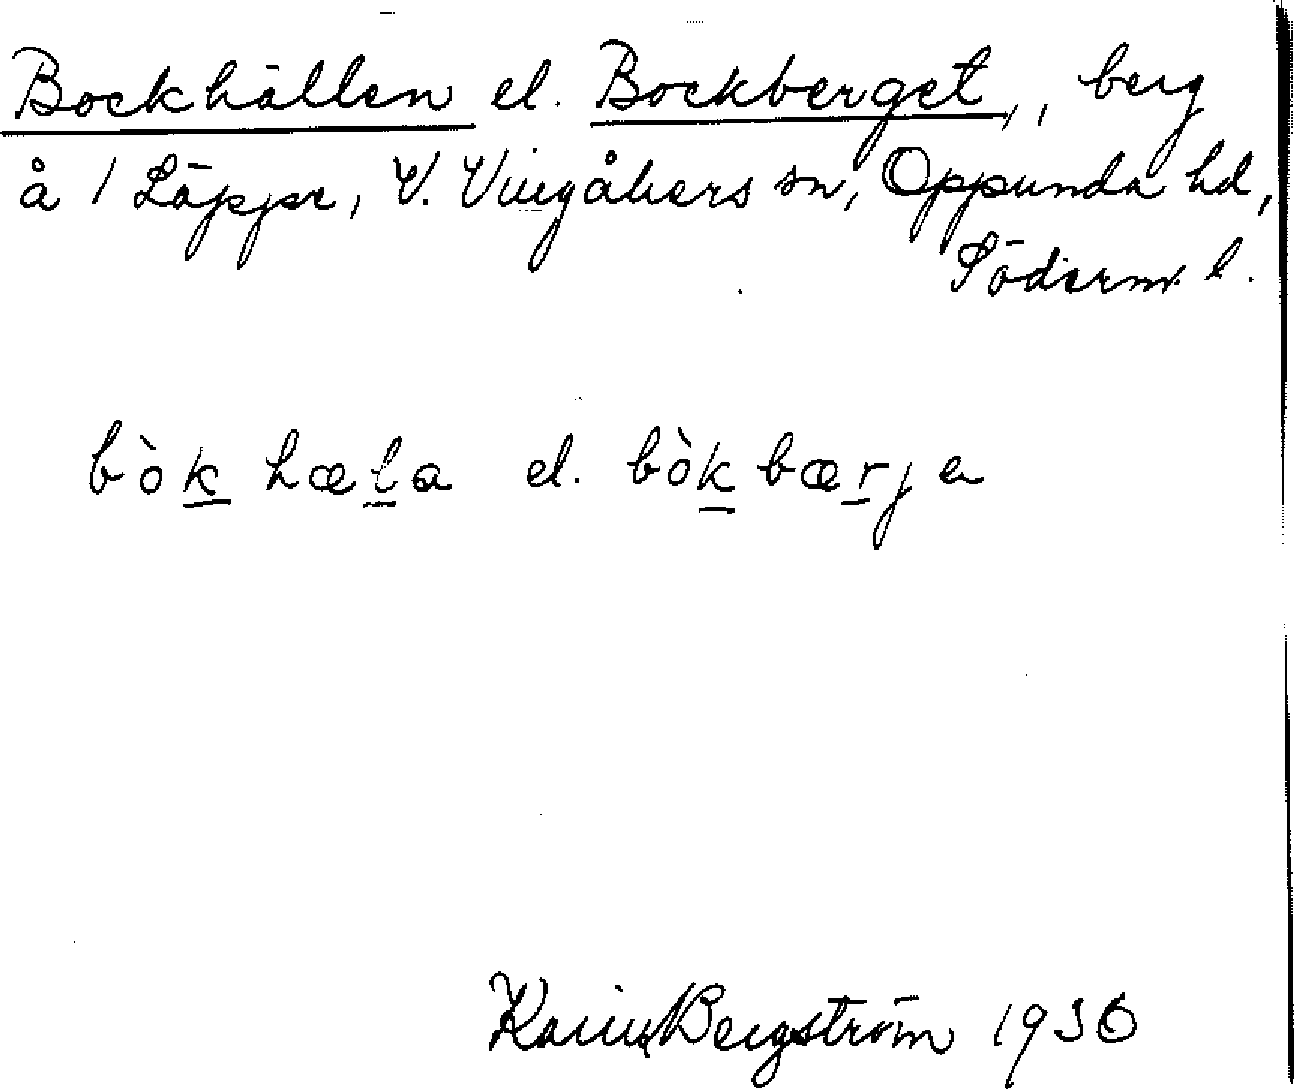 Bockhällen el. Bockberget, berg
å 1 Läppe, V. Vingåkers sn, Oppunda hd,
Söderm. l.
bòk hæla el. bòk bærje
Karin Bergström 1936